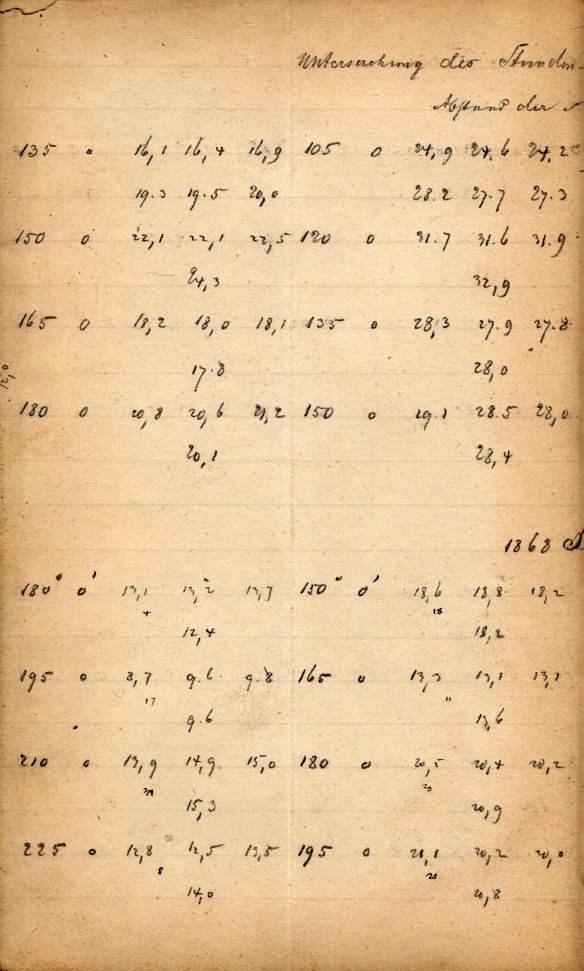 Untersuchung des Stunden-
Abstand der
135 0 16,1 16,4 16,9 105 0 24,9 24,6 24,2
19.3 19.5 20,0 28.2 27.7 27.3
150 0 22,1 22,1 22,5 120 0 31.7 31.6 31.9
24,3 32,9
165 0 18,2 18,0 18,1 135 0 28,3 27.9 27.8
17.8 28,0
12,0
180 0 20,8 20,6 21,2 150 0 29.1 28.5 28,0
20,1 28,4
1868
180° 0' 13,1 13,2 13,7 150° 0' 18,6 18,8 18,2
4 18
12,4 18,2
195 0 8,7 9.6 9.8 165 0 13,3 13,1 13,1
17 11
9.6 13,6
210 0 13,9 14,9 15,0 180 0 20,5 20,4 20,2
20
15,3 20,9
225 0 12,8 12,5 13,5 195 0 21,1 20,2 20,0
8
14,0 20,8